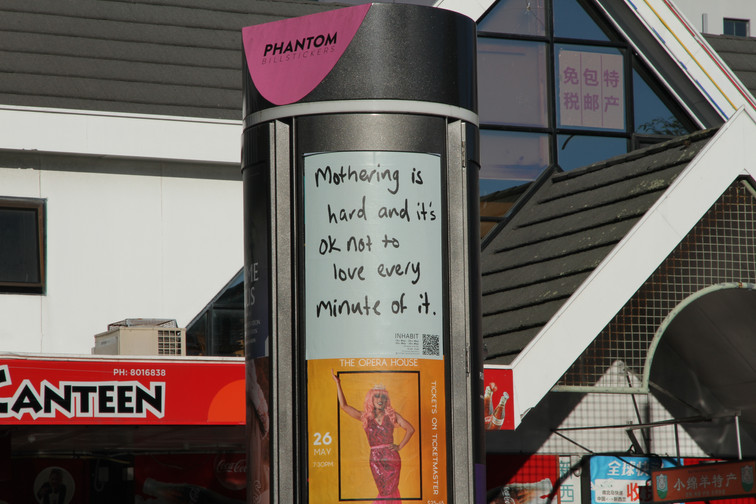 PHANTOM
BILLSTICKERS
Mothering is
hard and it's
ok not to
love every
minute of it.
INHABIT
THE OPERA HOUSE
26
MAY
7:30PM
TICKETS ON TICKETMASTER
PH: 8016838
CANTEEN
免包特
税邮产
全球
收
小绵羊特产